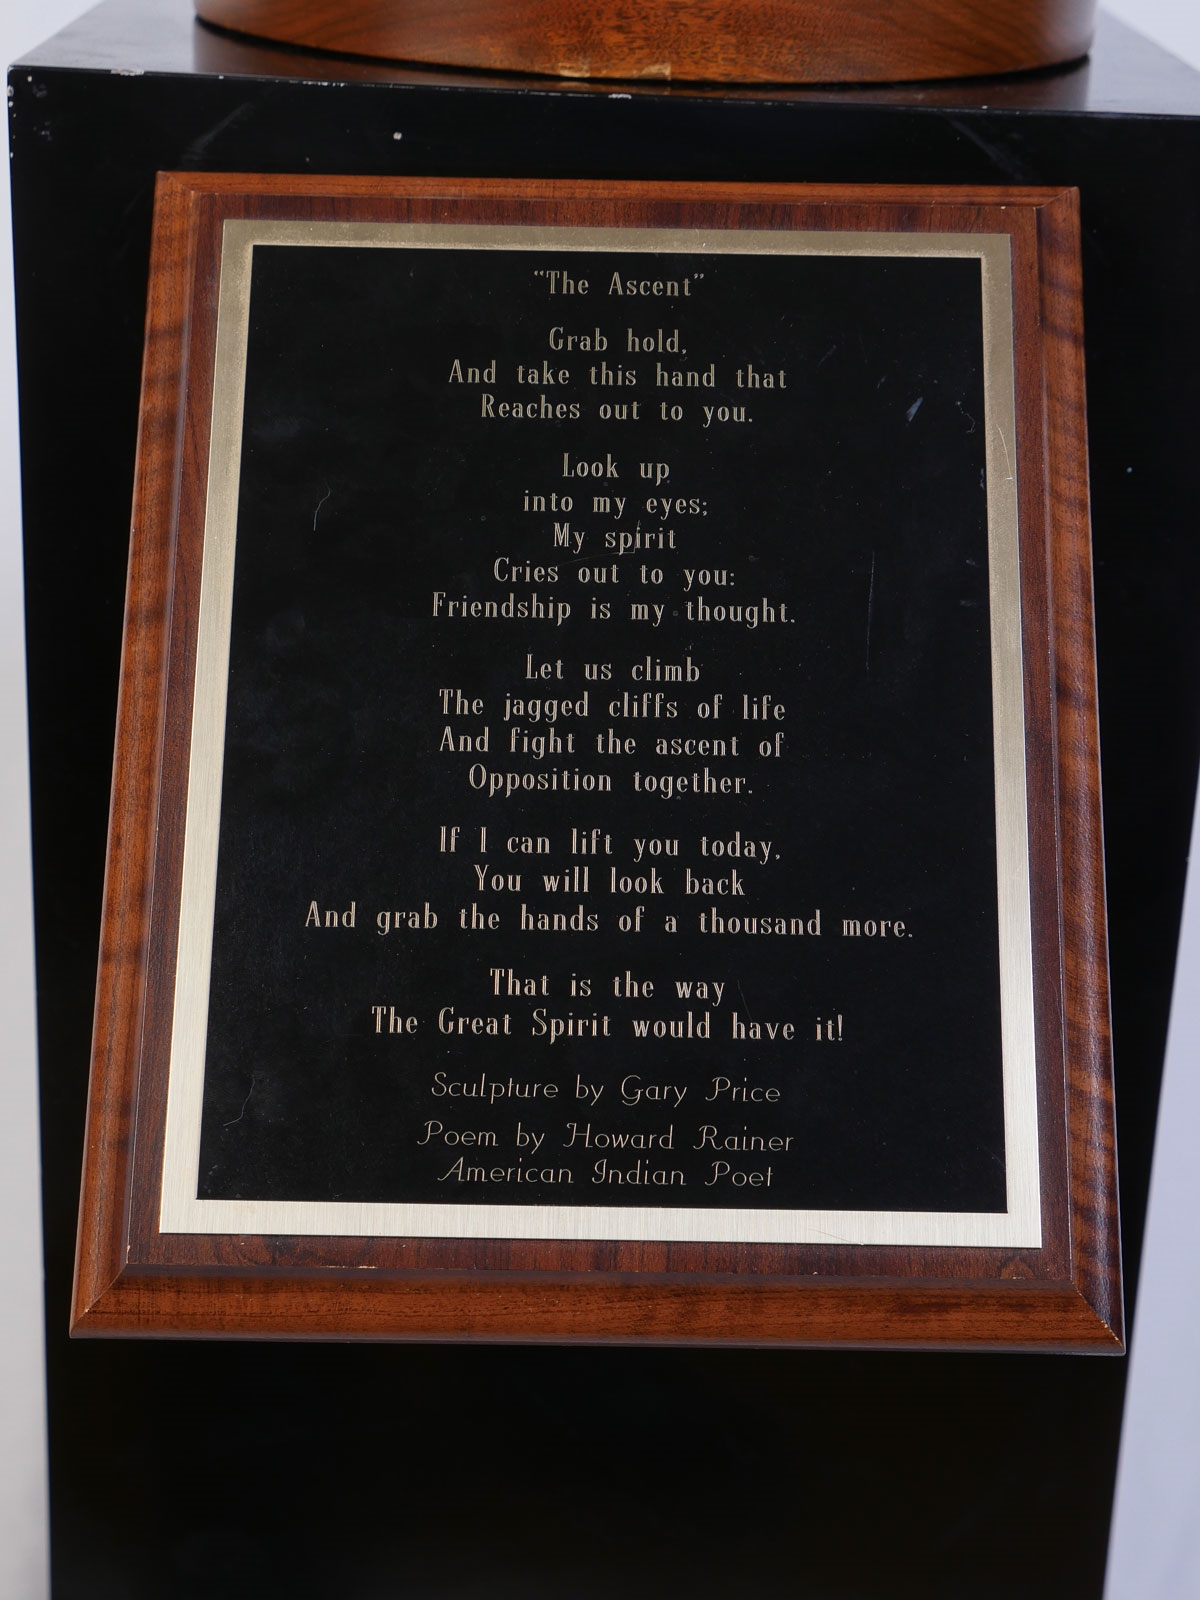 “The Ascent”
Grab hold,
And take this hand that
Reaches out to you.
Look up
into my eyes;
My spirit
Cries out to you:
Friendship is my thought.
Let us climb
The jagged cliffs of life
And fight the ascent of
Opposition together.
If I can lift you today,
You will look back
And grab the hands of a thousand more.
That is the way
The Great Spirit would have it!
Sculpture by Gary Price
Poem by Howard Rainer
American Indian Poet